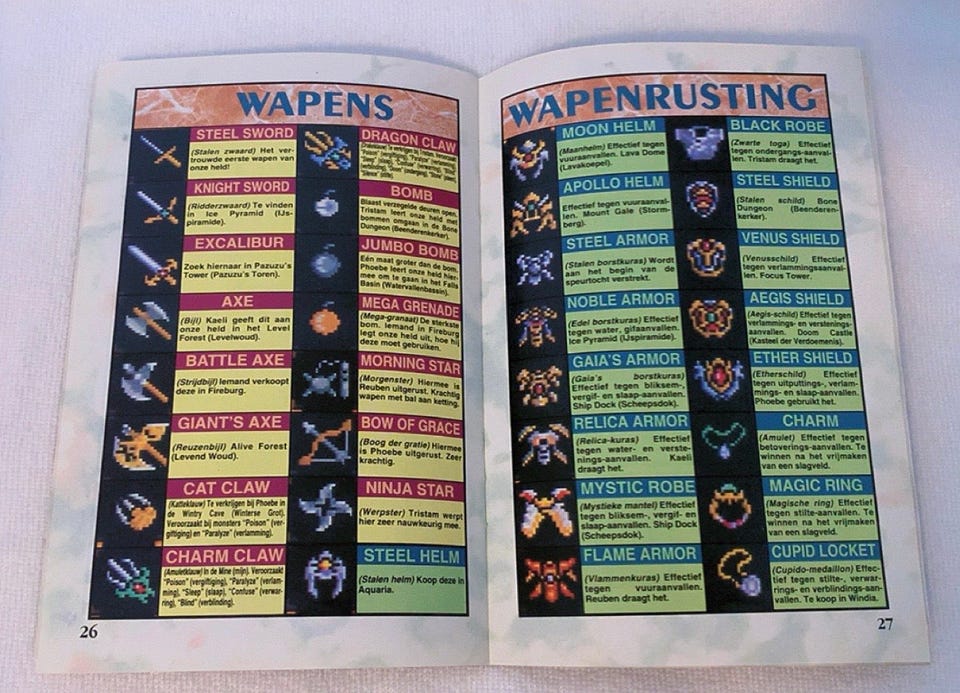 WAPENS
STEEL SWORD
(Stalen zwaard) Het ver-
trouwde eerste wapen van
onze held!
KNIGHT SWORD
(Ridderzwaard) Te vinden
in Ice Pyramid (IJs-
piramide).
EXCALIBUR
Zoek hiernaar in Pazuzu's
Tower (Pazuzu's Toren).
AXE
(Bijl) Kaeli geeft dit aan
onze held in het Level
Forest (Levelwoud).
BATTLE AXE
(Strijdbijl) Iemand verkoopt
deze in Fireburg.
GIANT'S AXE
(Reuzenbijl) Alive Forest
(Levend Woud).
CAT CLAW
(Katteklauw) Te verkrijgen bij Phoebe in
de Wintry Cave (Winterse Grot).
Veroorzaakt bij monsters "Poison" (ver-
giftiging) en "Paralyze" (verlamming).
CHARM CLAW
(Amuletklauw) in de Mine (mijn). Veroorzaakt
"Poison" (vergiftiging), "Paralyze" (verlam-
ming), "Sleep" (slaap), "Confuse" (verwar-
ring), "Blind" (verblinding).
DRAGON CLAW
BOMB
Blaast verzegelde deuren open.
Tristam leert onze held met
bommen omgaan in de Bone
Dungeon (Beenderenkerker).
JUMBO BOMB
Eén maat groter dan de bom.
Phoebe leert onze held hier-
mee om te gaan in het Falls
Basin (Watervallenbessin).
MEGA GRENADE
(Mega-granaat) De sterkste
bom. Iemand in Fireburg
legt onze held uit, hoe hij
deze moet gebruiken.
MORNING STAR
(Morgenster) Hiermee is
Reuben uitgerust. Krachtig
wapen met bal aan ketting.
BOW OF GRACE
(Boog der gratie) Hiermee
is Phoebe uitgerust. Zeer
krachtig.
NINJA STAR
(Werpster) Tristam werpt
hier zeer nauwkeurig mee.
STEEL HELM
(Stalen helm) Koop deze in
Aquaria.
26
WAPENRUSTING
MOON HELM
(Maanhelm) Effectief tegen
vuuraanvallen. Lava Dome
(Lavakoepel).
APOLLO HELM
Effectief tegen vuuraanval-
len. Mount Gale (Storm-
berg).
STEEL ARMOR
(Stalen borstkuras) Wordt
aan het begin van de
speurtocht verstrekt.
NOBLE ARMOR
(Edel borstkuras) Effectief
tegen water-, gifaanvallen.
Ice Pyramid (IJspiramide).
GAIA'S ARMOR
(Gaia's borstkuras)
Effectief tegen bliksem-,
vergif- en slaap-aanvallen.
Ship Dock (Scheepsdok).
RELICA ARMOR
(Relica-kuras) Effectief
tegen water- en verste-
nings-aanvallen. Kaeli
draagt het.
MYSTIC ROBE
(Mystieke mantel) Effectief
tegen bliksem-, vergif- en
slaap-aanvallen. Ship Dock
(Scheepsdok).
FLAME ARMOR
(Vlammenkuras) Effectief
tegen vuuraanvallen.
Reuben draagt het.
BLACK ROBE
(Zwarte toga) Effectief
tegen ondergangs-aanval-
len. Tristam draagt het.
STEEL SHIELD
(Stalen schild) Bone
Dungeon (Beenderen-
kerker).
VENUS SHIELD
(Venusschild) Effectief
tegen verlammingsaanval-
len. Focus Tower.
AEGIS SHIELD
(Aegis-schild) Effectief tegen
verlammings- en verstenings-
aanvallen. Doom Castle
(Kasteel der Verdoemenis).
ETHER SHIELD
(Etherschild) Effectief
tegen uitputtings-, verlam-
mings- en slaap-aanvallen.
Phoebe gebruikt het.
CHARM
(Amulet) Effectief tegen
betoverings-aanvallen. Te
winnen na het vrijmaken
van een slagveld.
MAGIC RING
(Magische ring) Effectief
tegen stilte-aanvallen. Te
winnen na het vrijmaken
van een slagveld.
CUPID LOCKET
(Cupido-medaillon) Effec-
tief tegen stilte-, verwar-
rings- en verblindings-aan-
vallen. Te koop in Windia.
27